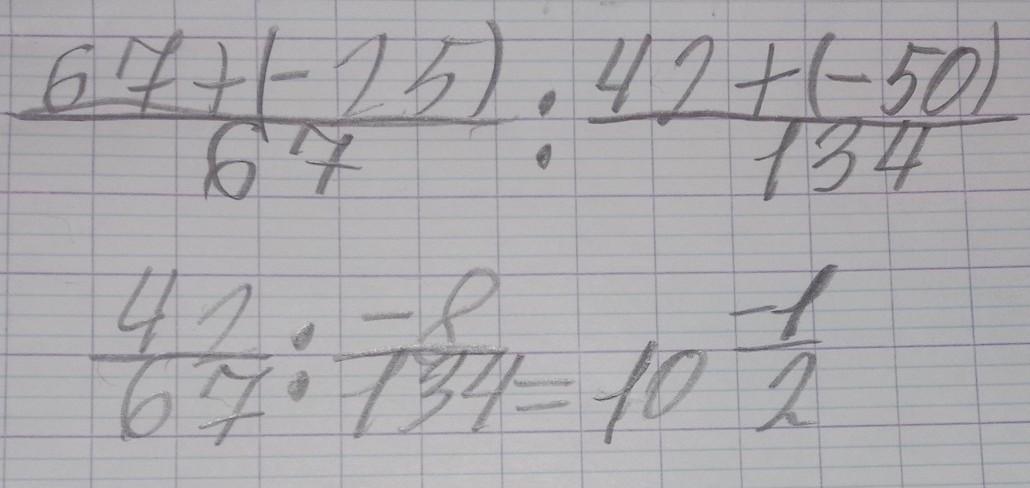 \frac{67+(-25)}{67} : \frac{42+(-50)}{134}
\frac{42}{67} : \frac{-8}{134} = 10 \frac{-1}{2}